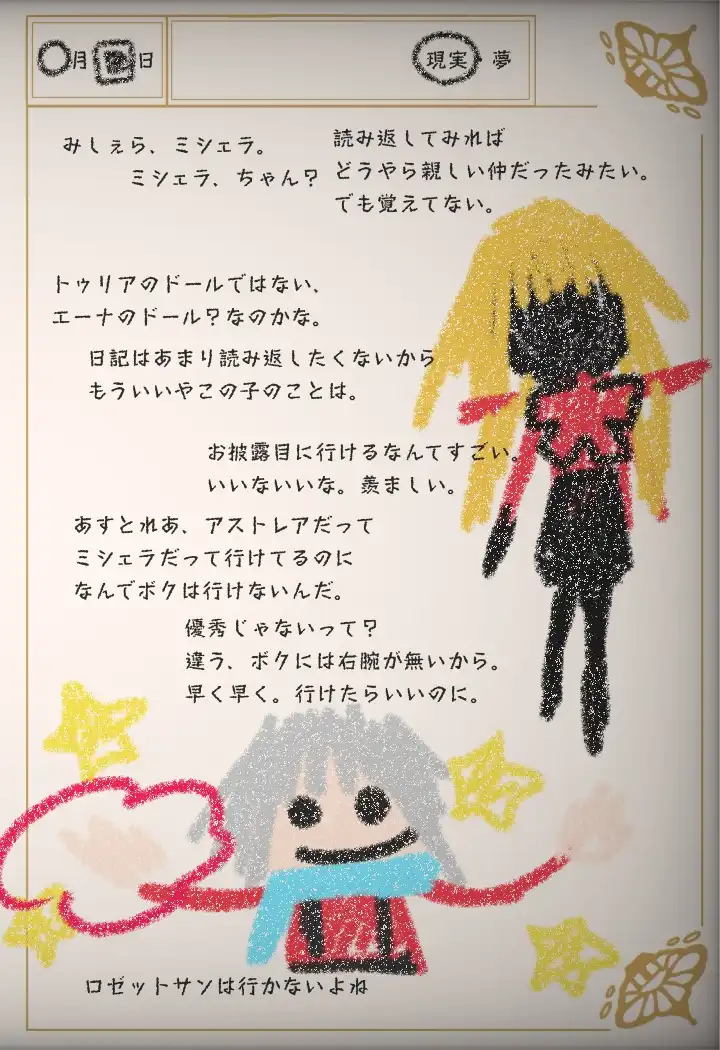 〇月 日
現実 夢
みしぇら、ミシェラ。
ミシェラ、ちゃん？
読み返してみれば
どうやら親しい仲だったみたい。
でも覚えてない。
トゥリアのドールではない、
エーナのドール？なのかな。
日記はあまり読み返したくないから
もういいやこの子のことは。
お披露目に行けるなんてすごい。
いいないいな。羨ましい。
あすとれあ、アストレアだって
ミシェラだって行けてるのに
なんでボクは行けないんだ。
優秀じゃないって？
違う、ボクには右腕が無いから。
早く早く。行けたらいいのに。
ロゼットサンは行かないよね